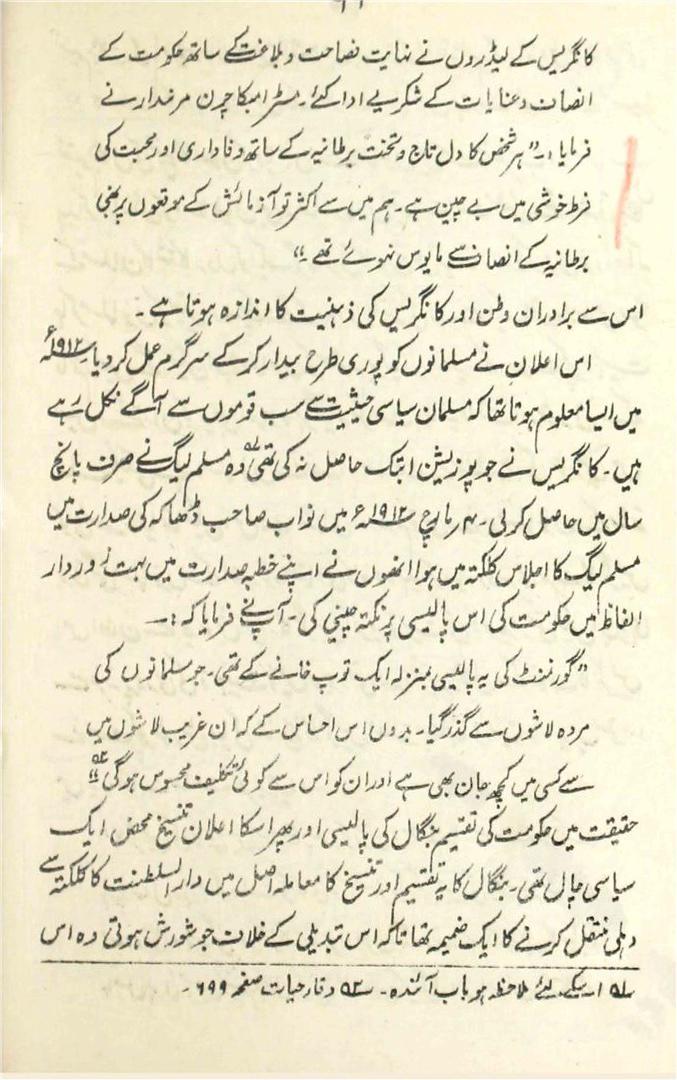 کانگریس کے لیڈروں نے نہایت فصاحت و بلاغت کے ساتھ حکومت کے
انصاف و عنایات کے شکریے ادا کئے۔ مسٹر امبکا چرن مزمدار نے
فرمایا :۔ "ہر شخص کا دل تاج و تخت برطانیہ کے ساتھ وفاداری اور محبت کی
فرط خوشی میں بے چین ہے۔ ہم میں سے اکثر تو آزمائش کے موقعوں پر بھی
برطانیہ کے انصاف سے مایوس نہوئے تھے۔"
اس سے برادران وطن اور کانگریس کی ذہنیت کا اندازہ ہوتا ہے۔
اس اعلان نے مسلمانوں کو پوری طرح بیدار کر کے سرگرم عمل کر دیا۔ ۱۹۱۲ء
میں ایسا معلوم ہوتا تھا کہ مسلمان سیاسی حیثیت سے سب قوموں سے آگے نکل رہے
ہیں۔ کانگریس نے جو پوزیشن ابتک حاصل نہ کی تھی ۱؎ وہ مسلم لیگ نے صرف پانچ
سال میں حاصل کر لی۔ ۴ مارچ ۱۹۱۲ء میں نواب صاحب ڈھاکہ کی صدارت میں
مسلم لیگ کا اجلاس کلکتہ میں ہوا انھوں نے اپنے خطبہ صدارت میں بہت زوردار
الفاظ میں حکومت کی اس پالیسی پر نکتہ چینی کی۔ آپ نے فرمایا کہ :۔
"گورنمنٹ کی یہ پالیسی بمنزلہ ایک توپ خانے کے تھی۔ جو مسلمانوں کی
مردہ لاشوں سے گذر گیا۔ بدوں اس احساس کے کہ ان غریب لاشوں میں
سے کسی میں کچھ جان بھی ہے اور ان کو اس سے کوئی تکلیف محسوس ہو گی" ۲؎
حقیقت میں حکومت کی تقسیم بنگال کی پالیسی اور پھر اسکا اعلان تنسیخ محض ایک
سیاسی چال تھی۔ بنگال کا یہ تقسیم اور تنسیخ کا معاملہ اصل میں دارالسلطنت کا کلکتہ سے
دہلی منتقل کرنے کا ایک ضمیمہ تھا تاکہ اس تبدیلی کے خلاف جو شورش ہوتی وہ اس
۱؎ اسکے لئے ملاحظہ ہو باب آئندہ۔ ۲؎ وقار حیات صفحہ ۶۹۹۔